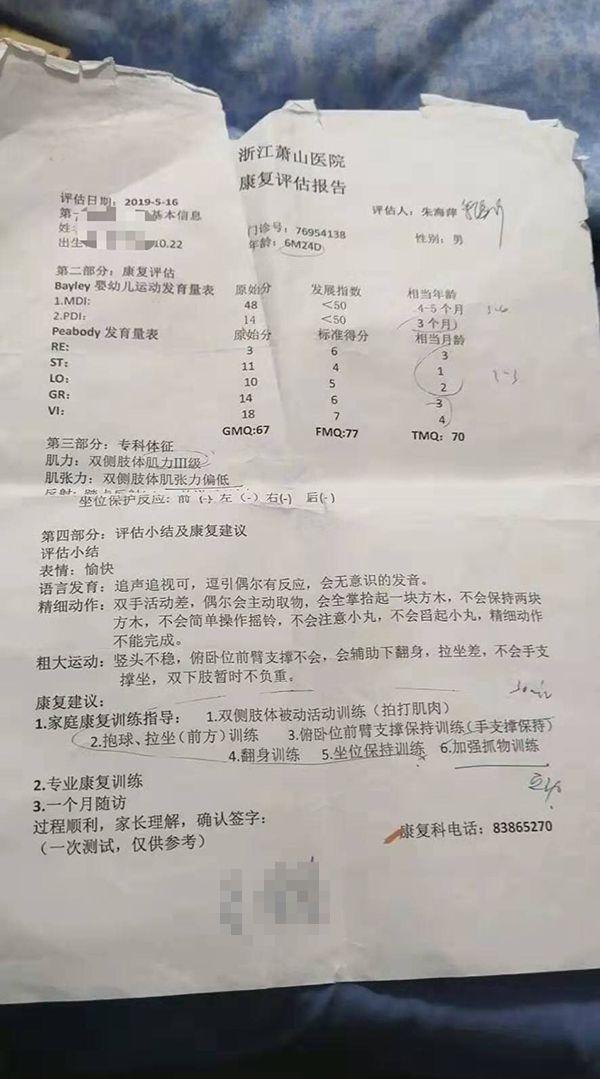 浙江萧山医院
康复评估报告
评估日期：2019-5-16 评估人：朱海萍
基本信息 门诊号：76954138 性别：男
出生 10.22 年龄：6M24D
第二部分：康复评估
Bayley 婴幼儿运动发育量表 原始分 发展指数 相当年龄
1.MDI: 48 ＜50 4-5个月
2.PDI: 14 ＜50 3个月
Peabody 发育量表 原始分 标准得分 相当月龄
RE: 3 6 3
ST: 11 4 1
LO: 10 5 2
GR: 14 6 3
VI: 18 7 4
GMQ:67 FMQ:77 TMQ: 70
第三部分：专科体征
肌力：双侧肢体肌力III级
肌张力：双侧肢体肌张力偏低
坐位保护反应：前（-）左（-）右(-) 后(-)
第四部分：评估小结及康复建议
评估小结
表情：愉快
语言发育：追声追视可，逗引偶尔有反应，会无意识的发音。
精细动作：双手活动差，偶尔会主动取物，会全掌抬起一块方木，不会保持两块
方木，不会简单操作摇铃，不会注意小丸，不会舀起小丸，精细动作
不能完成。
粗大运动：竖头不稳，俯卧位前臂支撑不会，会辅助下翻身，拉坐差，不会手支
撑坐，双下肢暂时不负重。
康复建议：
1.家庭康复训练指导： 1.双侧肢体被动活动训练（拍打肌肉）
2.抱球、拉坐（前方）训练 3.俯卧位前臂支撑保持训练（手支撑保持）
4.翻身训练 5.坐位保持训练 6.加强抓物训练
2.专业康复训练
3.一个月随访
过程顺利，家长理解，确认签字： 康复科电话：83865270
（一次测试，仅供参考）